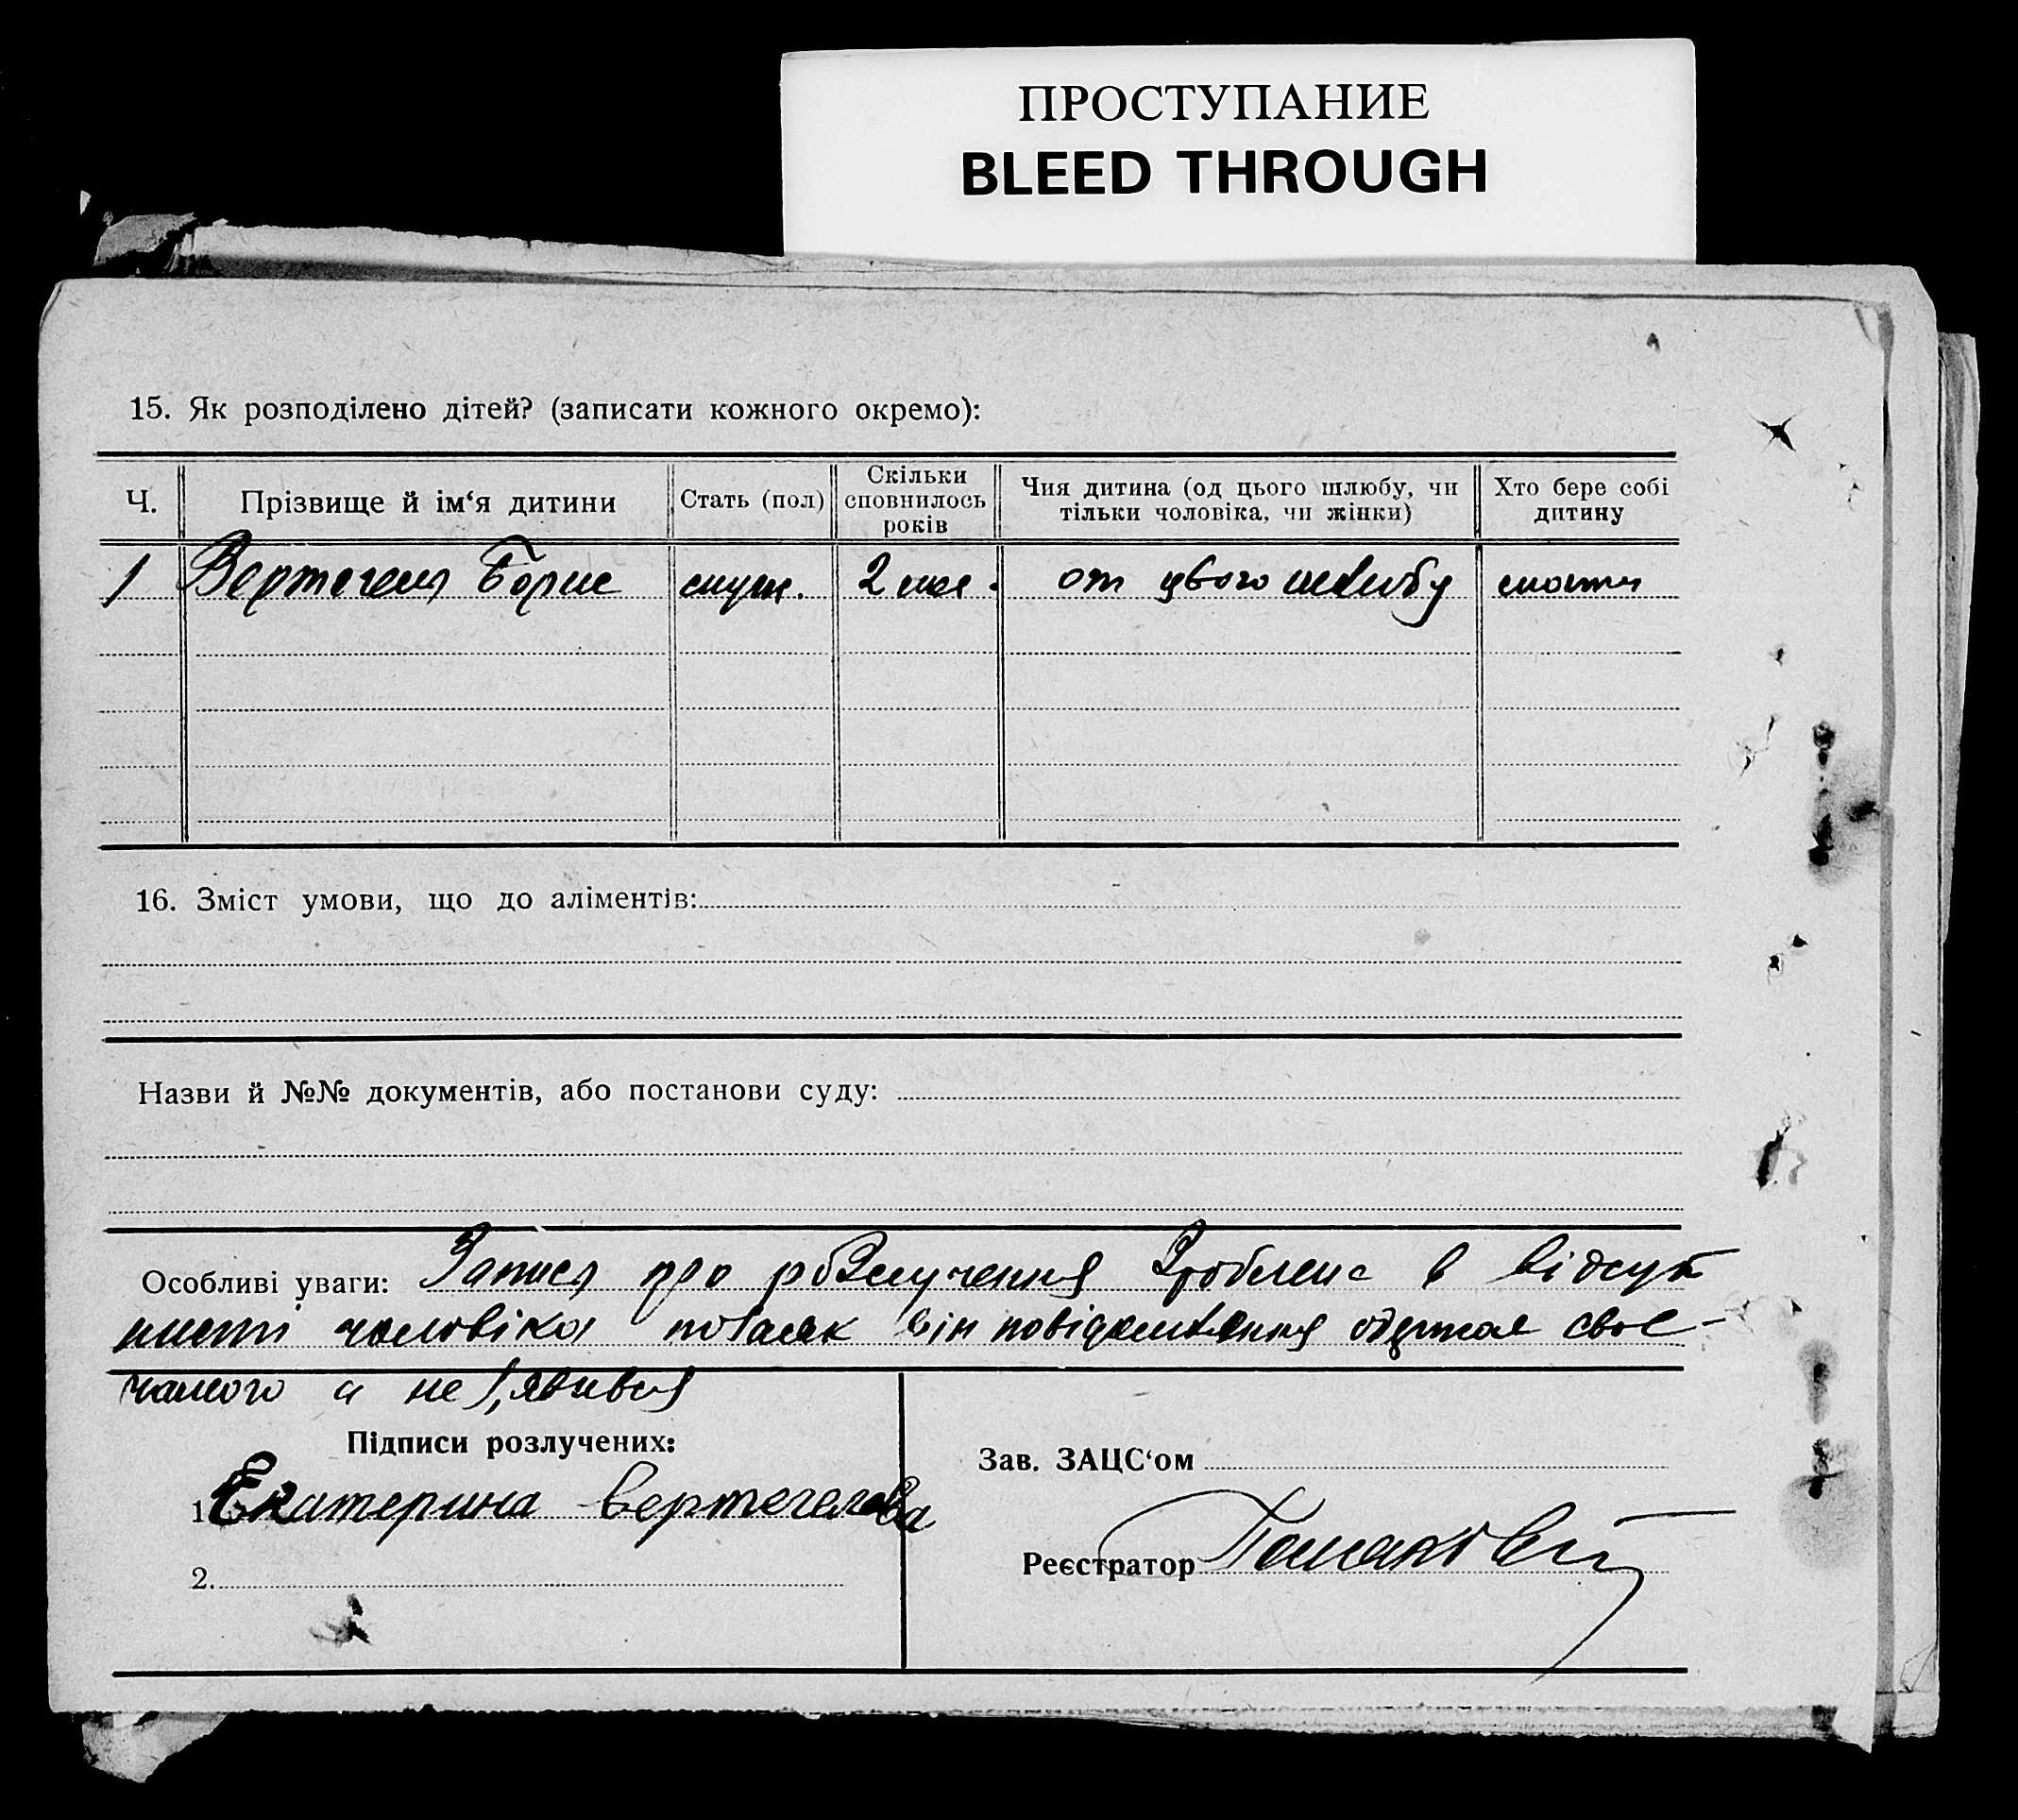 ПРОСТУПАНИЕ
BLEED THROUGH
15. Як розподілено дітей? (записати кожного окремо):
Ч. Прізвище й ім‘я дитини Стать (пол) Скільки сповнилось років Чия дитина (од цього шлюбу, чи тільки чоловіка, чи жінки) Хто бере собі дитину
1 Борис 2 от цього шлюбу
16. Зміст умови, що до аліментів:
Назви й №№ документів, або постанови суду:
Особливі уваги: Запись про розлучення зроблено в відсут
ности чоловіка повідомлення одержав своє-
часного а не явився
Підписи розлучених:
1. Екатерина Вертегелова
2.
Зав. ЗАЦС‘ом
Реєстратор